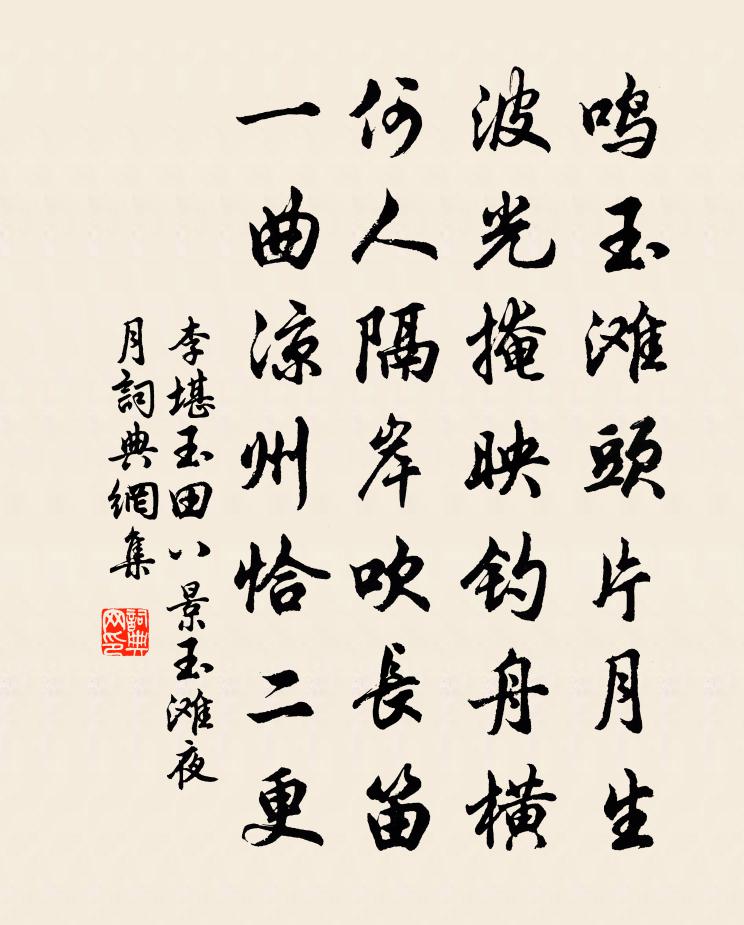 鸣玉滩頭片月生
波光掩映钓舟橫
何人隔岸吹長笛
一曲凉州恰二更
李堪玉田八景玉滩夜
月詞典網集
詞典网印